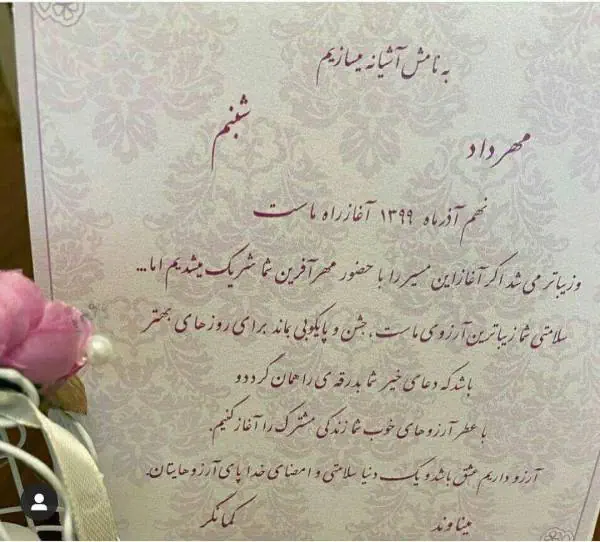 به نامش آشیانه میسازیم
شبنم
مهرداد
نهم آذرماه ۱۳۹۹ آغاز راه ماست
و زیباتر می شد اگر آغاز این مسیر را با حضور مهرآفرین شما شریک میشدیم اما...
سلامتی شما زیباترین آرزوی ماست، جشن و پایکوبی بماند برای روزهای بهتر
باشد که دعای خیر شما بدرقه ی راهمان گردد و
با عطر آرزوهای خوب شما زندگی مشترک را آغاز کنیم.
آرزو داریم عشق باشد و یک دنیا سلامتی و امضای خدا پای آرزوهایتان.
میناوند
کمانگر